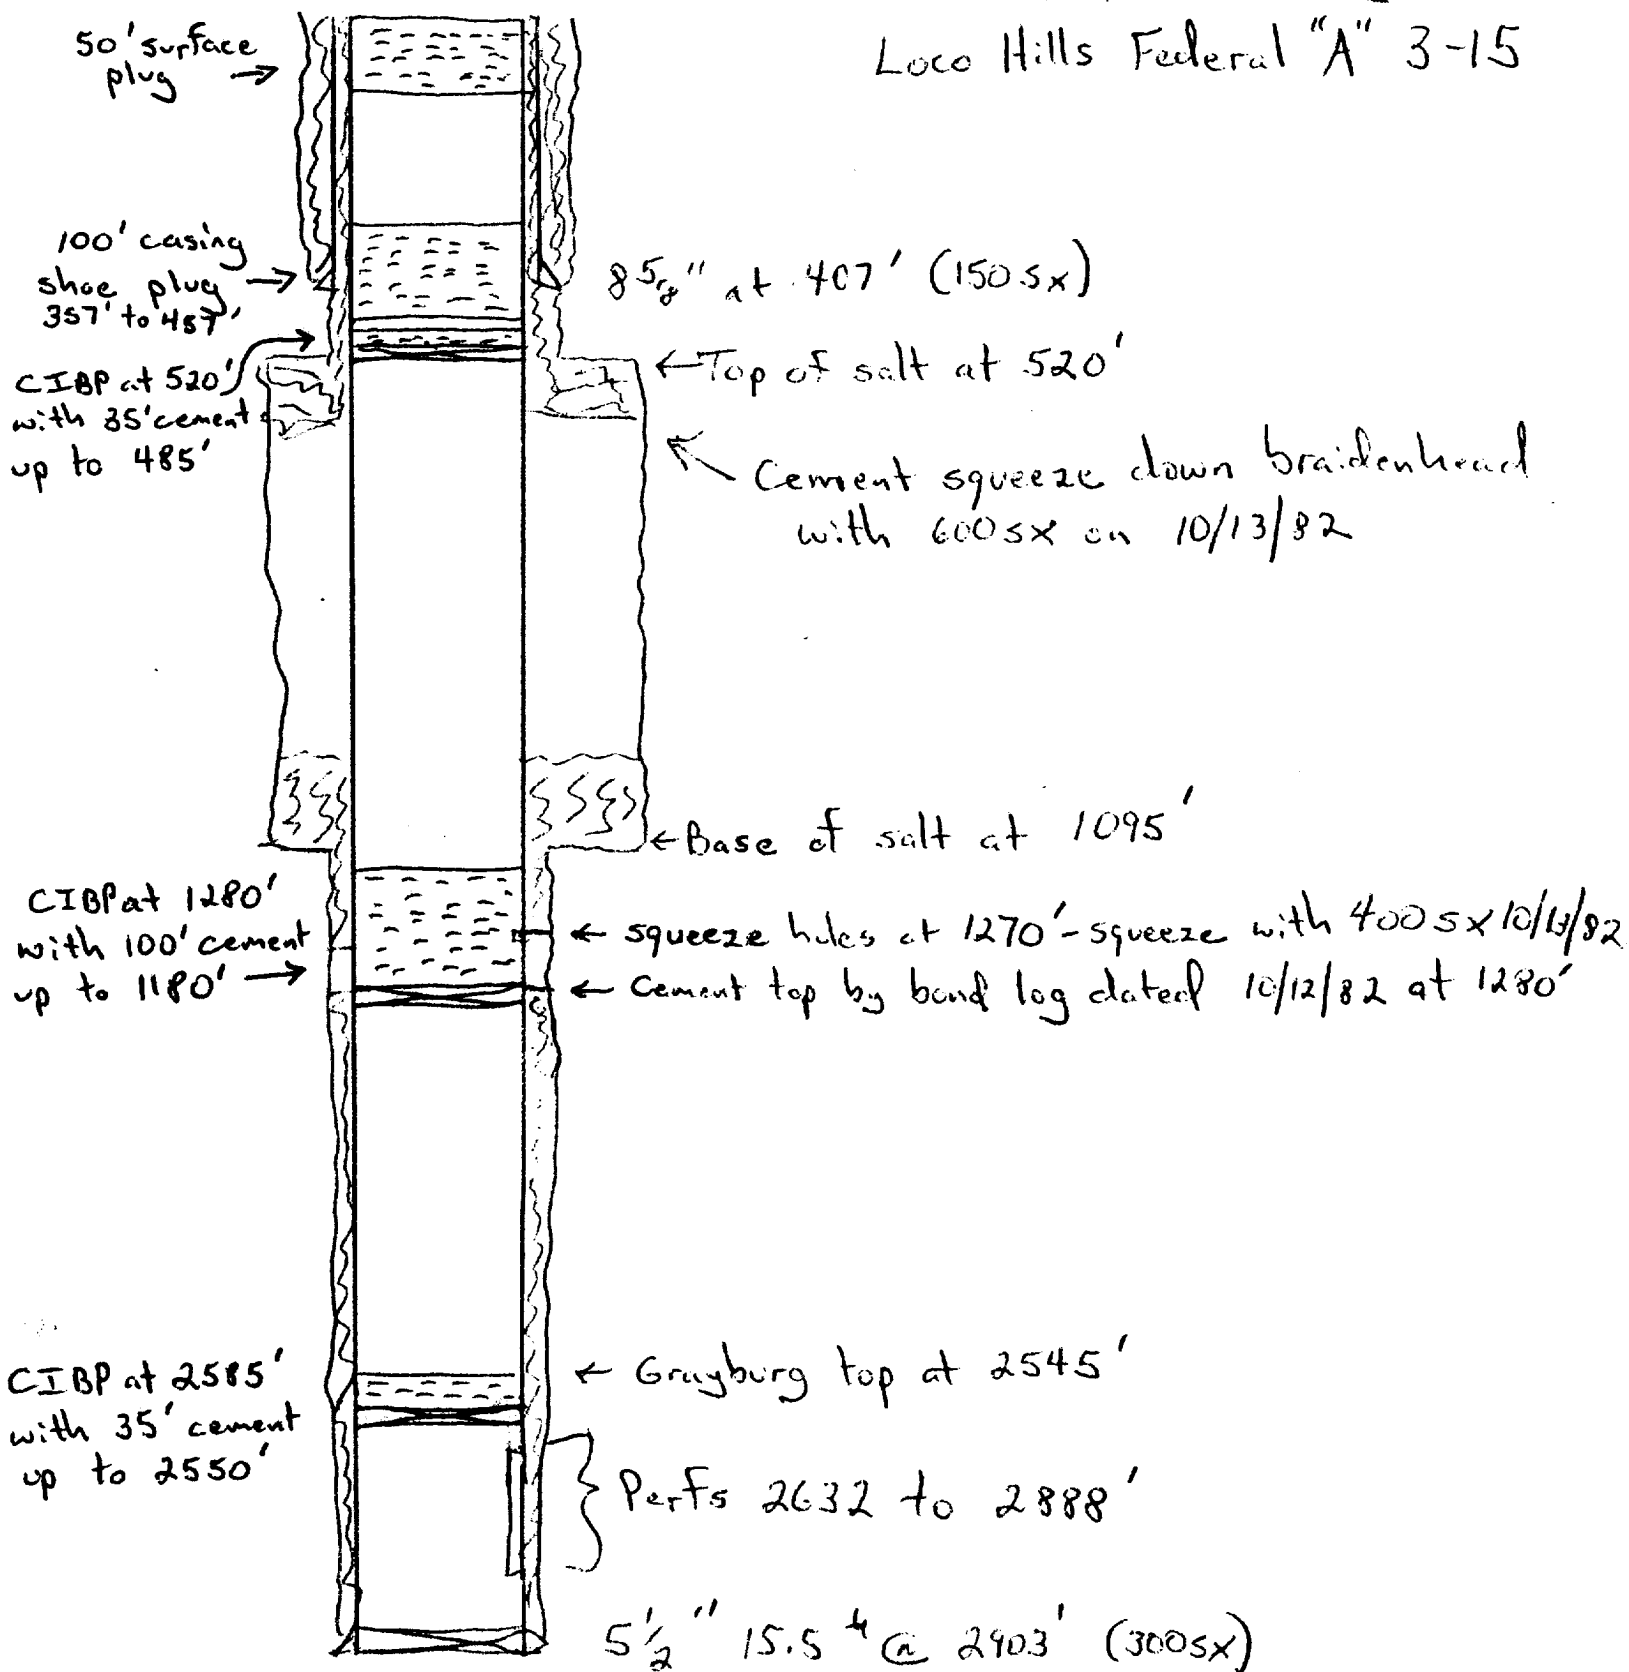 Loco Hills Federal "A" 3-15
50' surface
plug →
100' casing
shoe plug →
357' to 457'
8 5/8" at 407' (150 sx)
CIBP at 520'
with 35' cement
up to 485'
← Top of salt at 520'
Cement squeeze down braidenhead
with 600 sx on 10/13/82
← Base of salt at 1095'
CIBP at 1280'
with 100' cement
up to 1180' →
← squeeze holes at 1270' - squeeze with 400 sx 10/13/82
← Cement top by bond log dated 10/12/82 at 1280'
← Grayburg top at 2545'
CIBP at 2585'
with 35' cement
up to 2550'
Perfs 2632 to 2888'
5 1/2" 15.5 # @ 2903' (300 sx)